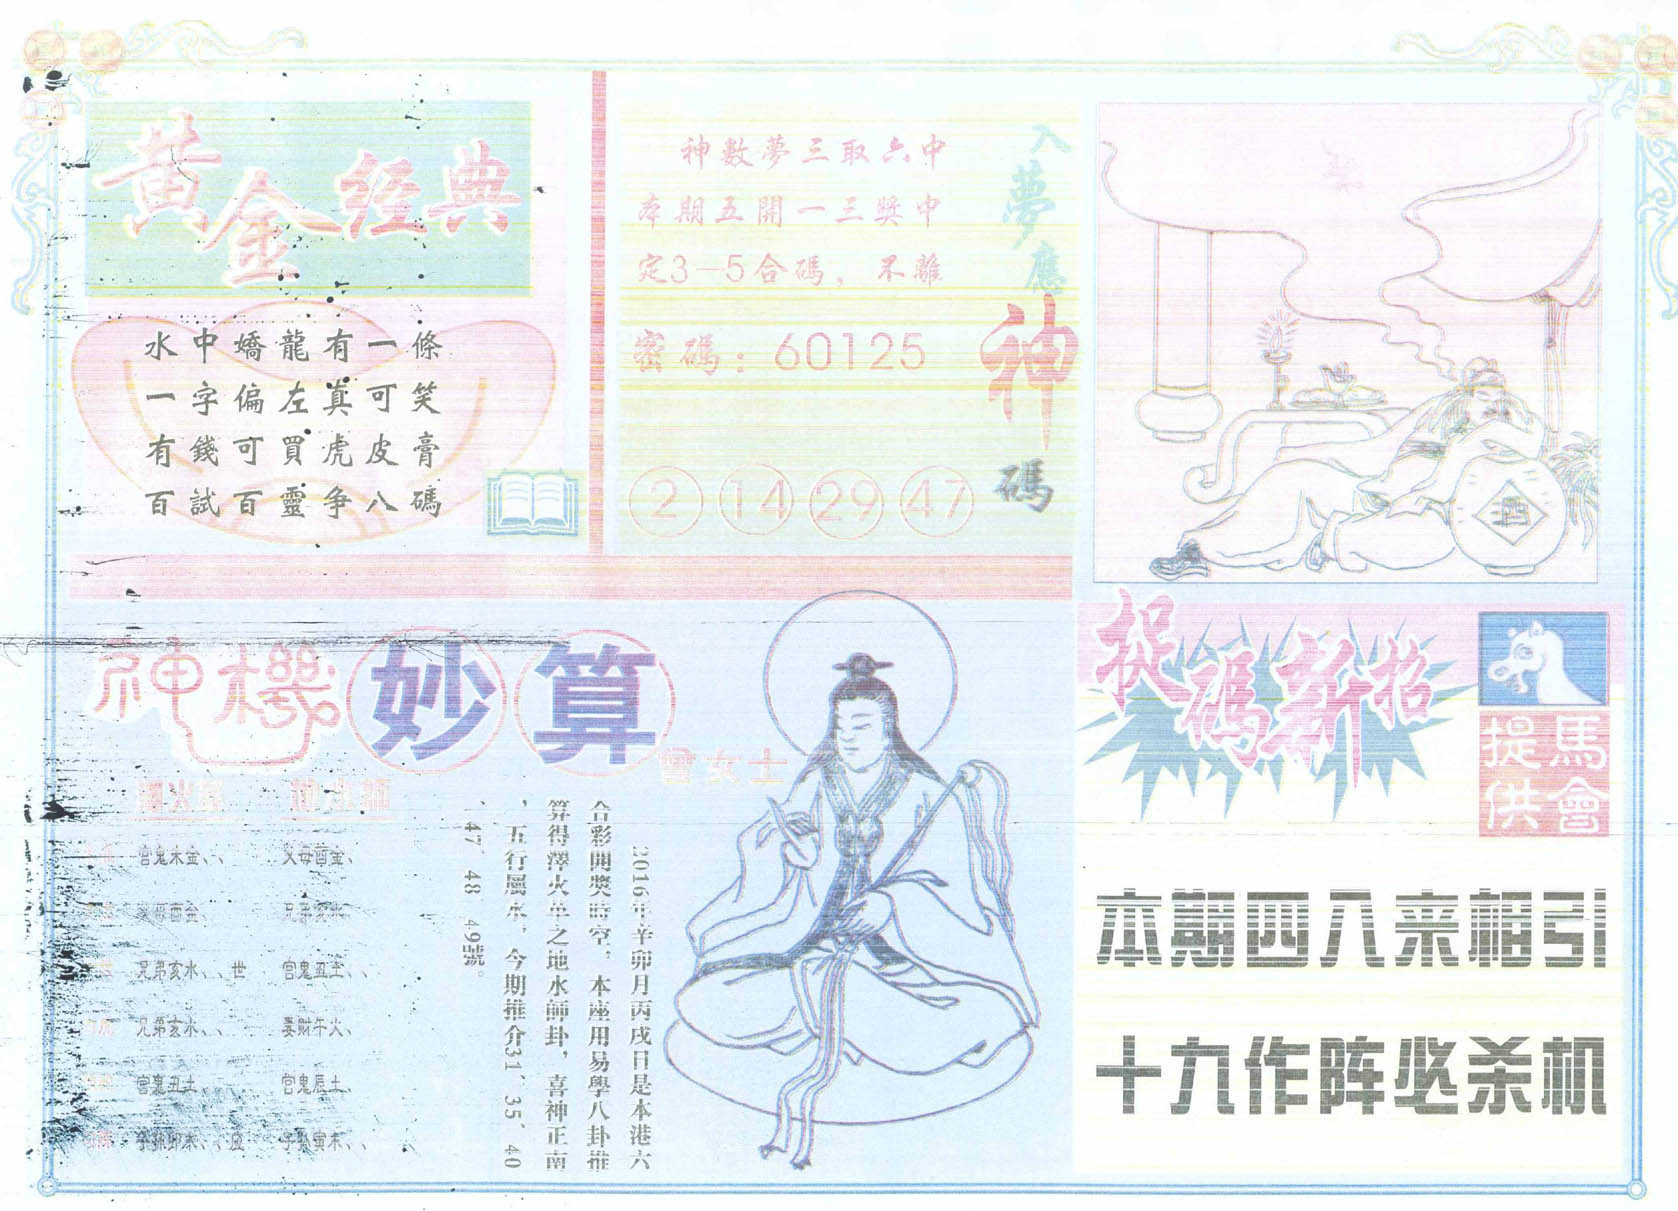 黃金经典
水中嬌龍有一條
一字偏左真可笑
有錢可買虎皮膏
百試百靈爭八碼
入夢應神碼
神數夢三取六中
本期五開一三獎中
定3—5合碼，不離
密碼：60125
2 14 29 47
酒
神機妙算
曾女士
2016年辛卯月丙戌日是本港六
合彩開獎時空，本座用易學八卦推
算得澤火革之地水師卦，喜神正南
，五行屬水，今期推介31、35、40
、47、48、49號。
官鬼未金、、 父母酉金、
兄弟亥水、、世 官鬼丑土、、
兄弟亥水、、 妻财午火、
官鬼丑土、 官鬼辰土、
捉碼新招
馬會提供
本期四八来相引
十九作阵必杀机